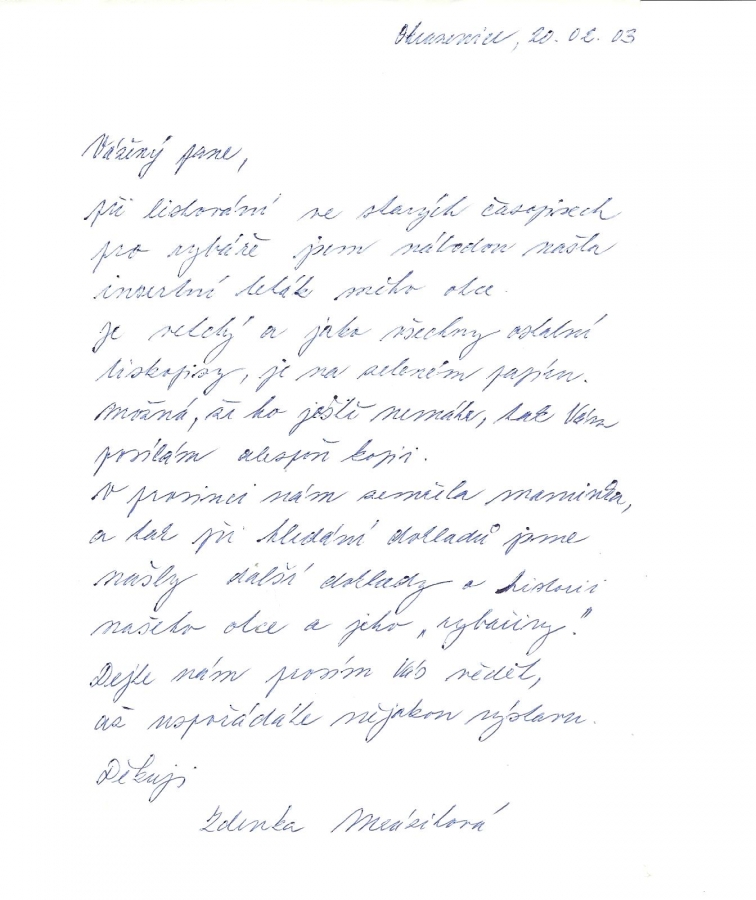 20. 02. 03
Vážený pane,
při listování ve starých časopisech
pro rybáře jsem náhodou našla
insertní leták mého otce.
Je velký a jako všechny ostatní
tiskopisy, je na zeleném papíru.
Možná, že ho ještě nemáte, tak Vám
posílám alespoň kopii.
V prosinci nám zemřela maminka,
a tak při hledání dokladů jsme
našly další doklady o historii
našeho otce a jeho „rybařiny".
Dejte nám prosím Vás vědět,
až uspořádáte nějakou výstavu.
Děkuji
Zdenka